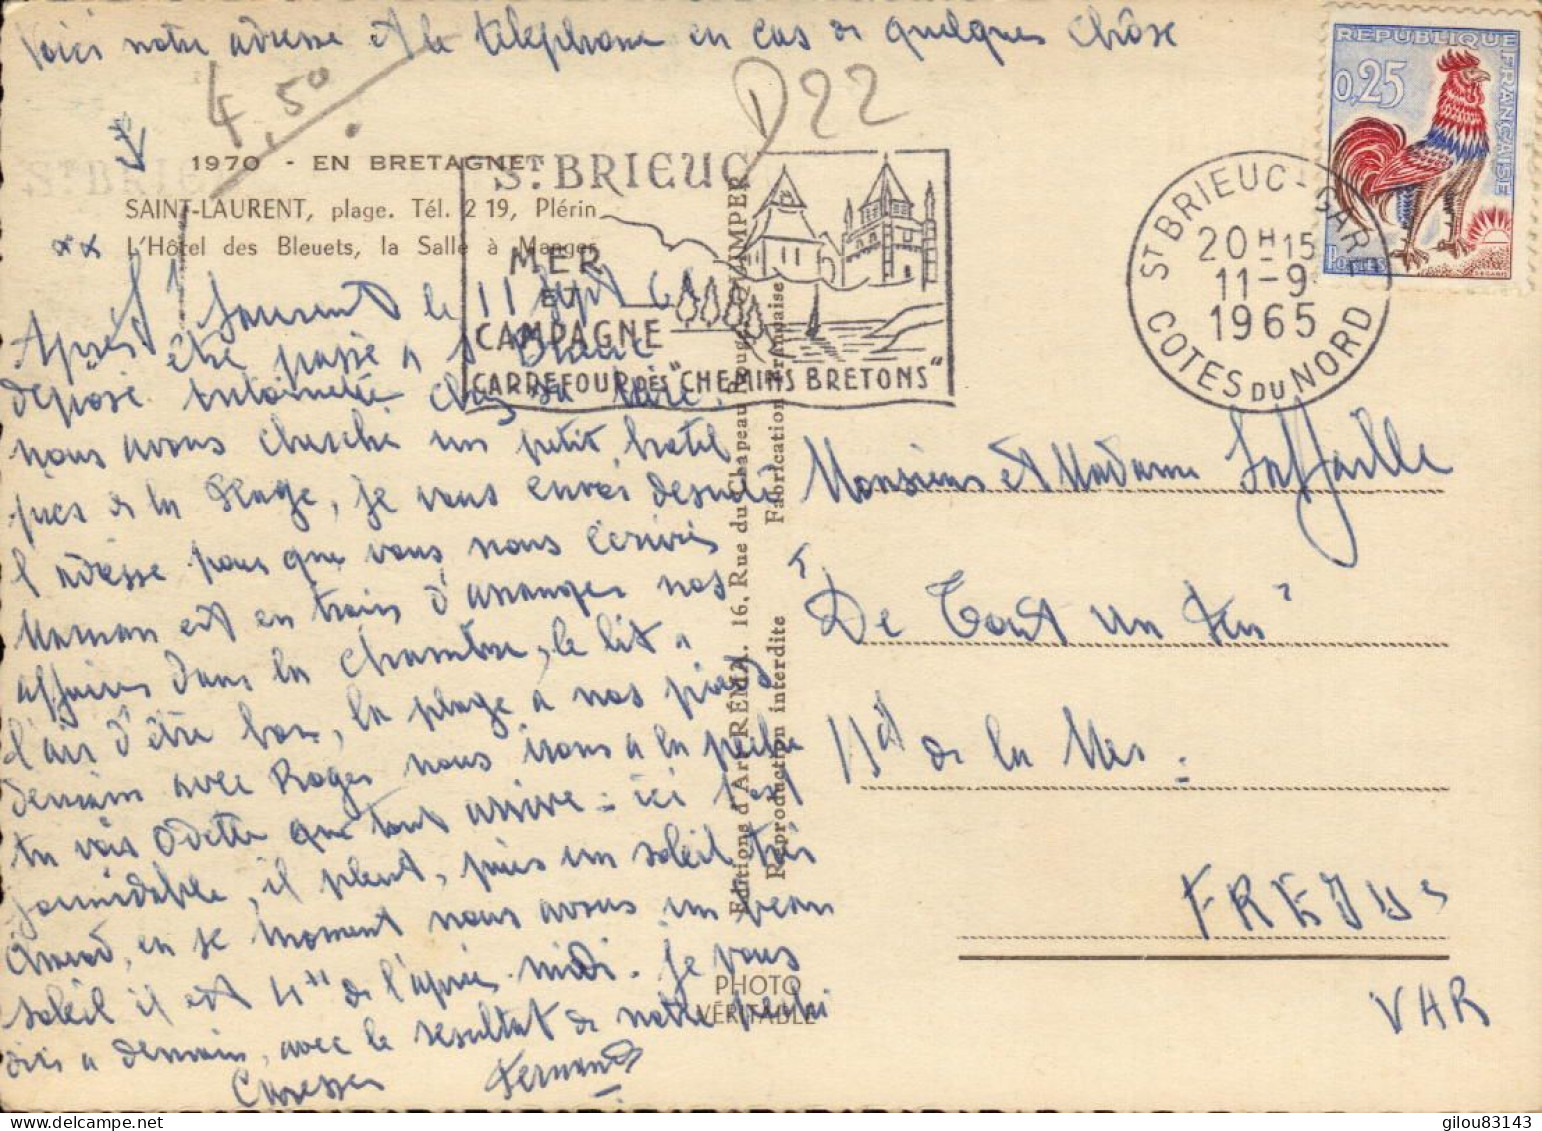 Voici notre adresse et le téléphone en cas de quelques chôse
4,50
D22
1970 - EN BRETAGNE
SAINT-LAURENT, plage. Tél. 2 19, Plérin
L'Hôtel des Bleuets, la Salle à Manger
St BRIEUC
MER
ET
CAMPAGNE
CARREFOUR DES "CHEMINS BRETONS"
REPUBLIQUE FRANÇAISE
0,25
POSTES
ST BRIEUC-GARE
20 H 15
11-9
1965
COTES DU NORD
St Laurent le 11 Sept 65
Après être passé a St Brieuc
déposé Antoinette chez
nous avons cherché un petit hotel
près de la Plage, je vous envoi dessus
l'adresse pour que vous nous écrivés
Maman est en train d'arranger nos
affaires dans la chambre, le lit a
l'air d'être bon, la plage a nos pieds
demain avec Roger nous irons a la pêche
tu vois Odette que tout arrive = ici c'est
formidable, il pleut, puis un soleil très
Grand, en se moment nous avons un beau
soleil il est 4 H de l'après-midi. je vous
dis a demain, avec le resultat de notre peche
Caresses Fernand
Editions d'Art RÉMA. 16, Rue du Chapeau Rouge. QUIMPER
Reproduction interdite Fabrication Française
PHOTO
VÉRITABLE
Monsieur et Madame Laffaille
"De Tout un Peu"
Bd de la Mer.
FREJUS
VAR
gilou83143